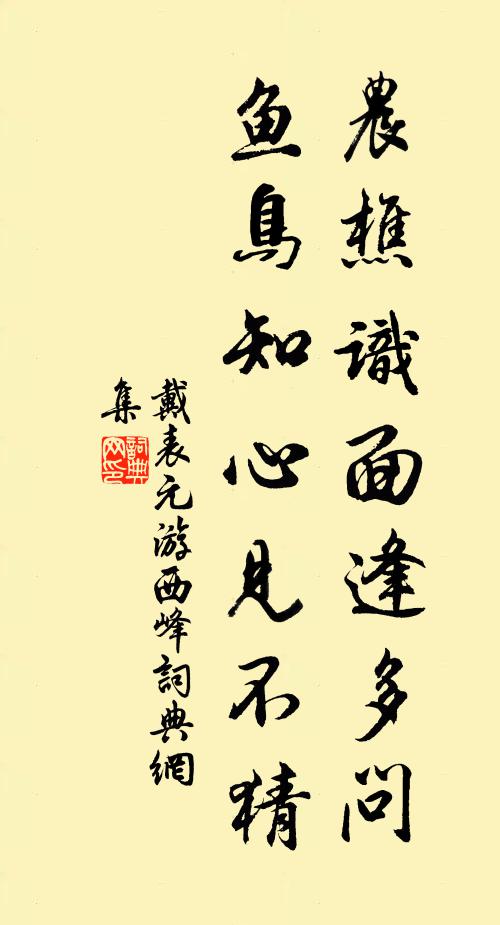 農樵識面逢多問
鱼鳥知心見不猜
戴表元游西峰詞典網
集
詞典网印